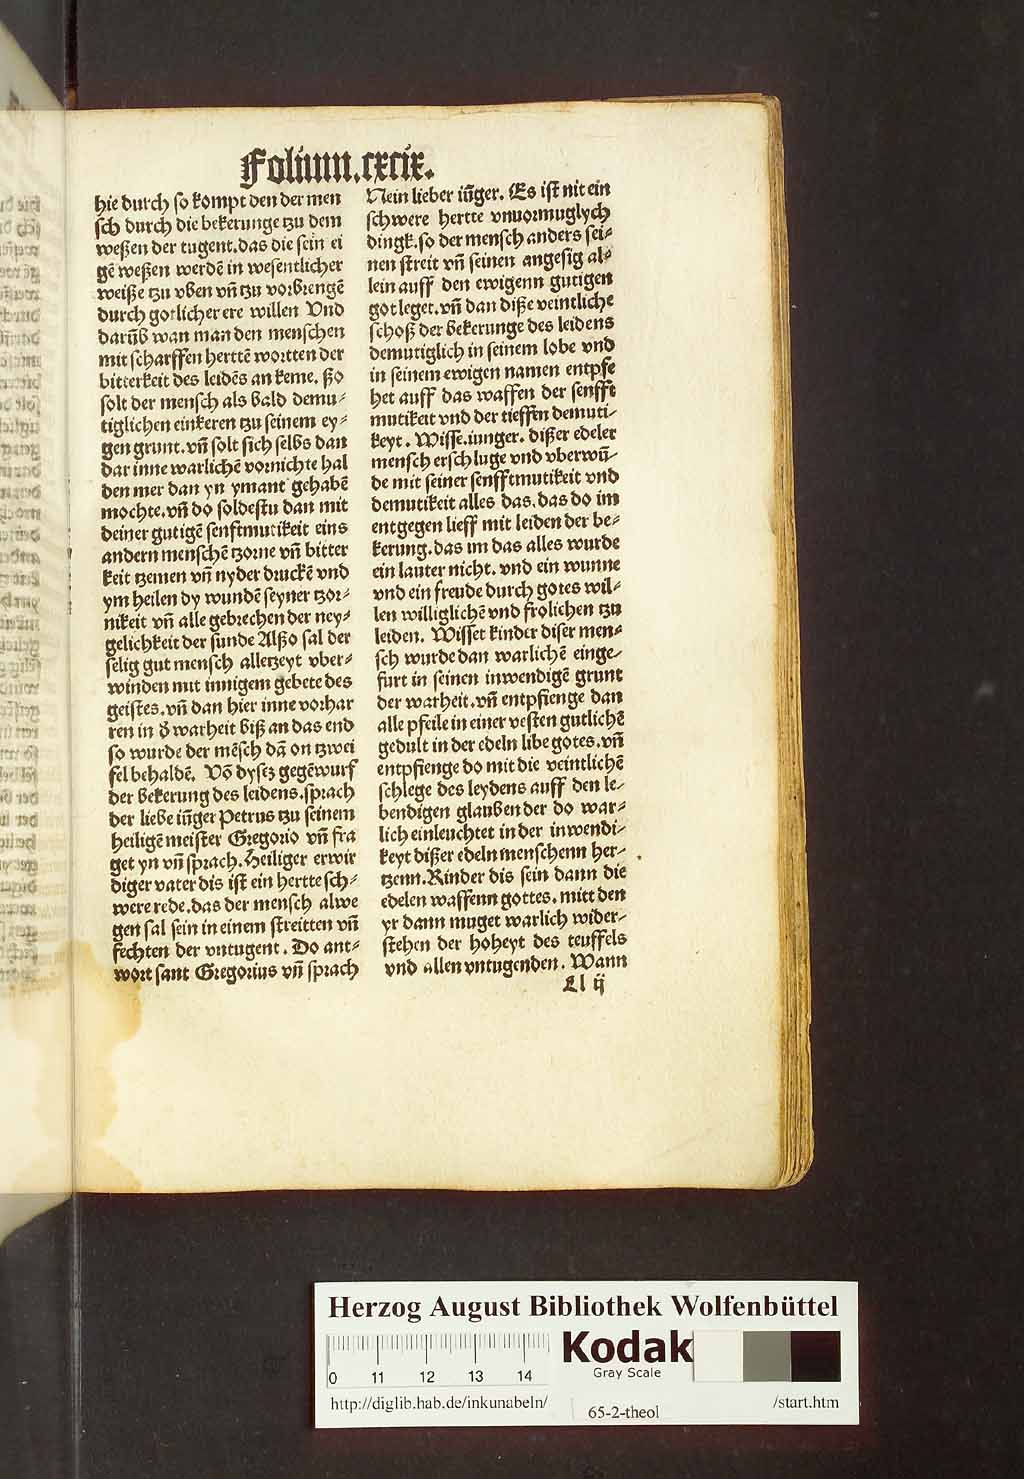 Folium.cxcix.
hie durch so kompt den der men
sch durch die bekerunge tzu dem
weßen der tugent.das die sein ei
gē weßen werdē in wesentlicher
weiße tzu vben vñ tzu vorbrengē
durch gotlicher ere willen Vnd
darūb wan man den menschen
mit scharffen herttē wortten der
bitterkeit des leidēs an keme. ßo
solt der mensch als bald demu⸗
tiglichen einkeren tzu seinem ey⸗
gen grunt.vñ solt sich selbs dan
dar inne warlichē vornichte hal
den mer dan yn ymant gehabē
mochte.vñ do soldestu dan mit
deiner gutigē senftmutikeit eins
andern menschē tzorne vñ bitter
keit tzemen vñ nyder druckē vnd
ym heilen dy wundē seyner tzor⸗
nikeit vñ alle gebrechen der ney⸗
gelichkeit der sunde Alßo sal der
selig gut mensch allerzeyt vber⸗
winden mit innigem gebete des
geistes.vñ dan hier inne vorhar
ren in d̓ warheit biß an das end
so wurde der mēsch dā on tzwei
fel behaldē. Vō dysez gegēwurf
der bekerung des leidens.sprach
der liebe iūger Petrus tzu seinem
heiligē meister Gregorio vñ fra
get yn vñ sprach.Heiliger erwir
diger vater dis ist ein hertte sch⸗
were rede.das der mensch alwe
gen sal sein in einem streitten vñ
fechten der vntugent. Do ant⸗
wort sant Gregorius vñ sprach
Nein lieber iūger. Es ist nit ein
schwere hertte vnuormuglych
dingk.so der mensch anders sei⸗
nen streit vñ seinen angesig al⸗
lein auff den ewigenn gutigen
got leget.vñ dan diße veintliche
schoß der bekerunge des leidens
demutiglich in seinem lobe vnd
in seinem ewigen namen entpfe
het auff das waffen der senfft
mutikeit vnd der tieffen demuti⸗
keyt. Wisse.iunger. dißer edeler
mensch erschluge vnd vberwū⸗
de mit seiner senfftmutikeit vnd
demutikeit alles das.das do im
entgegen lieff mit leiden der be⸗
kerung.das im das alles wurde
ein lauter nicht. vnd ein wunne
vnd ein freude durch gotes wil⸗
len williglichē vnd frolichen tzu
leiden. Wisset kinder diser men⸗
sch wurde dan warlichē einge⸗
furt in seinen inwendigē grunt
der warheit.vñ entpfienge dan
alle pfeile in einer vesten gutlichē
gedult in der edeln libe gotes.vñ
entpfienge do mit die veintlichē
schlege des leydens auff den le⸗
bendigen glauben der do war⸗
lich einleuchtet in der inwendi⸗
keyt dißer edeln menschenn her⸗
tzenn.Kinder dis sein dann die
edelen waffenn gottes. mitt den
yr dann muget warlich wider⸗
stehen der hoheyt des teuffels
vnd allen vntugenden. Wann
Ll ij
Herzog August Bibliothek Wolfenbüttel
Kodak
Gray Scale
0 11 12 13 14
http://diglib.hab.de/inkunabeln/
65-2-theol
/start.htm